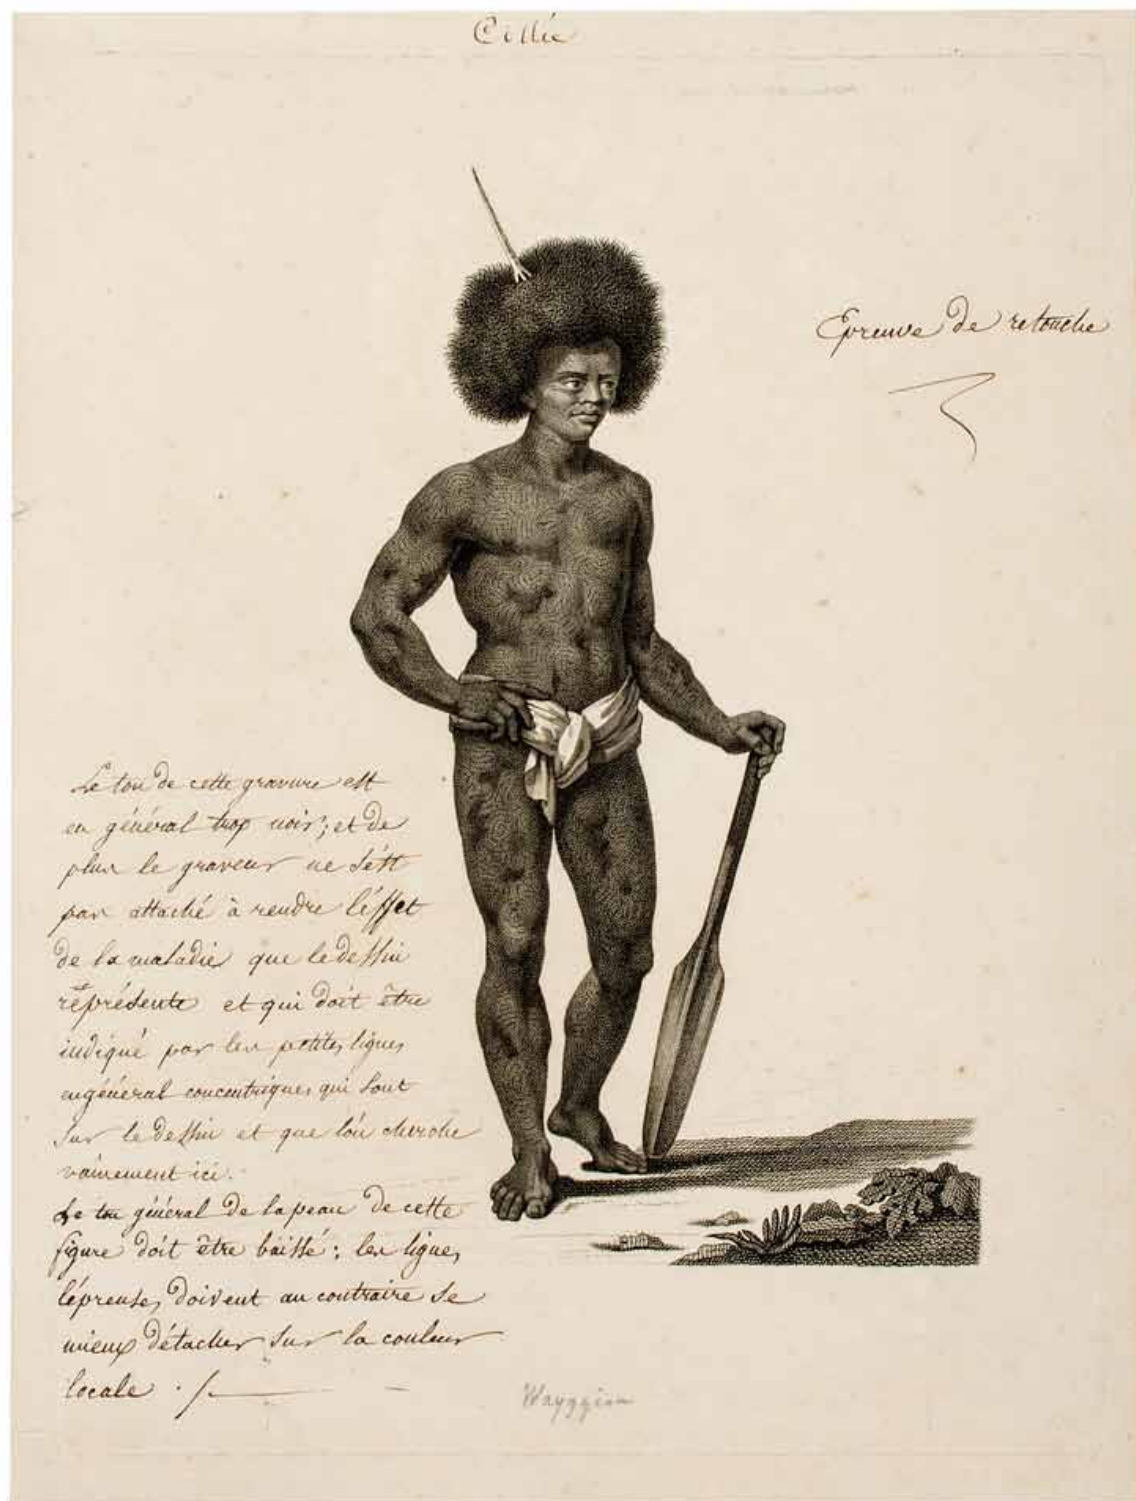 Epreuve de retouche
Le ton de cette gravure est
en général trop noir; et de
plus le graveur ne s'est
pas attaché à rendre l'éffet
de la maladie que le dessin
réprésente et qui doit être
indiqué par les petites lignes
en général concentriques qui sont
sur le dessin et que l'on cherche
vainement ici.
Le ton général de la peau de cette
figure doit être baissé: les lignes
lépreuses, doivent au contraire se
mieux détacher sur la couleur
locale ./.